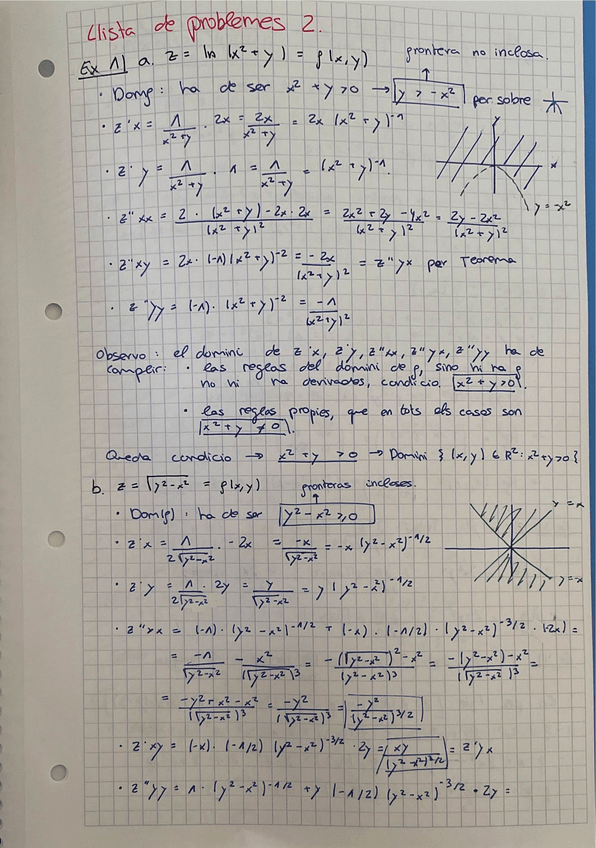 Llista de problemes 2.
Ex 1) a. z = ln (x² + y) = f(x,y)
frontera no inclosa.
• Domf: ha de ser x² + y > 0 → y > -x² per sobre
• z'x = 1/(x²+y) · 2x = 2x/(x²+y) = 2x (x² + y)⁻¹
y
x
y = -x²
• z'y = 1/(x²+y) · 1 = 1/(x²+y) = (x² + y)⁻¹.
• z''xx = (2 · (x² + y) - 2x · 2x)/(x² + y)² = (2x² + 2y - 4x²)/(x² + y)² = (2y - 2x²)/(x² + y)²
• z''xy = 2x · (-1) (x² + y)⁻² = -2x/(x² + y)² = z''yx per Teorema
• z''yy = (-1) · (x² + y)⁻² = -1/(x² + y)²
Observo: el domini de z'x, z'y, z''xx, z''yx, z''yy ha de
complir: • las reglas del domini de f, sino ni ha f
no hi ha derivades, condicio x² + y > 0.
• las reglas propies, que en tots els casos son
x² + y ≠ 0.
Queda condicio → x² + y > 0 → Domini {(x,y) ∈ R²: x² + y > 0}
b. z = √(y² - x²) = f(x,y)
fronteras incloses.
• Dom(f): ha de ser y² - x² ≥ 0
y = x
y = -x
• z'x = 1/(2√(y²-x²)) · -2x = -x/√(y²-x²) = -x (y² - x²)^(-1/2)
• z'y = 1/(2√(y²-x²)) · 2y = y/√(y²-x²) = y (y² - x²)^(-1/2)
• z''xx = (-1) · (y² - x²)^(-1/2) + (-x) · (-1/2) · (y² - x²)^(-3/2) · (-2x) =
= -1/√(y²-x²) - x²/(√(y²-x²))³ = (-(√(y²-x²))² - x²)/(√(y²-x²))³ = (-(y²-x²) - x²)/(√(y²-x²))³ =
= (-y² + x² - x²)/(√(y²-x²))³ = -y²/(√(y²-x²))³ = -y²/(y²-x²)^(3/2)
• z''xy = (-x) · (-1/2) (y² - x²)^(-3/2) · 2y = xy/(y²-x²)^(3/2) = z''yx
• z''yy = 1 · (y² - x²)^(-1/2) + y (-1/2) (y² - x²)^(-3/2) · 2y =